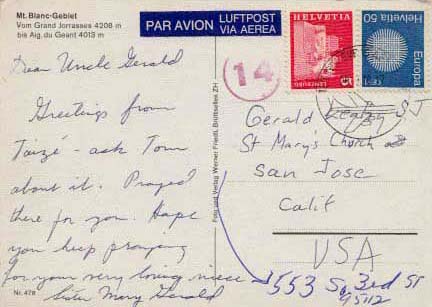 Mt. Blanc-Gebiet
Vom Grand Jorrasses 4208 m
bis Aig. du Geant 4013 m
PAR AVION LUFTPOST
VIA AEREA
HELVETIA
5
LENZBURG
Helvetia 50
Europa
14
Dear Uncle Gerald
Greetings from
Taizé - ask Tom
about it. Prayed
there for you. Hope
you keep praying
for your very loving niece
Sister Mary Gerald
Foto und Verlag Werner Friedli, Brüttisellen ZH
Gerald SJ
St Mary's Church
San Jose
Calif
USA
553 So 3rd St
95112
Nr. 478